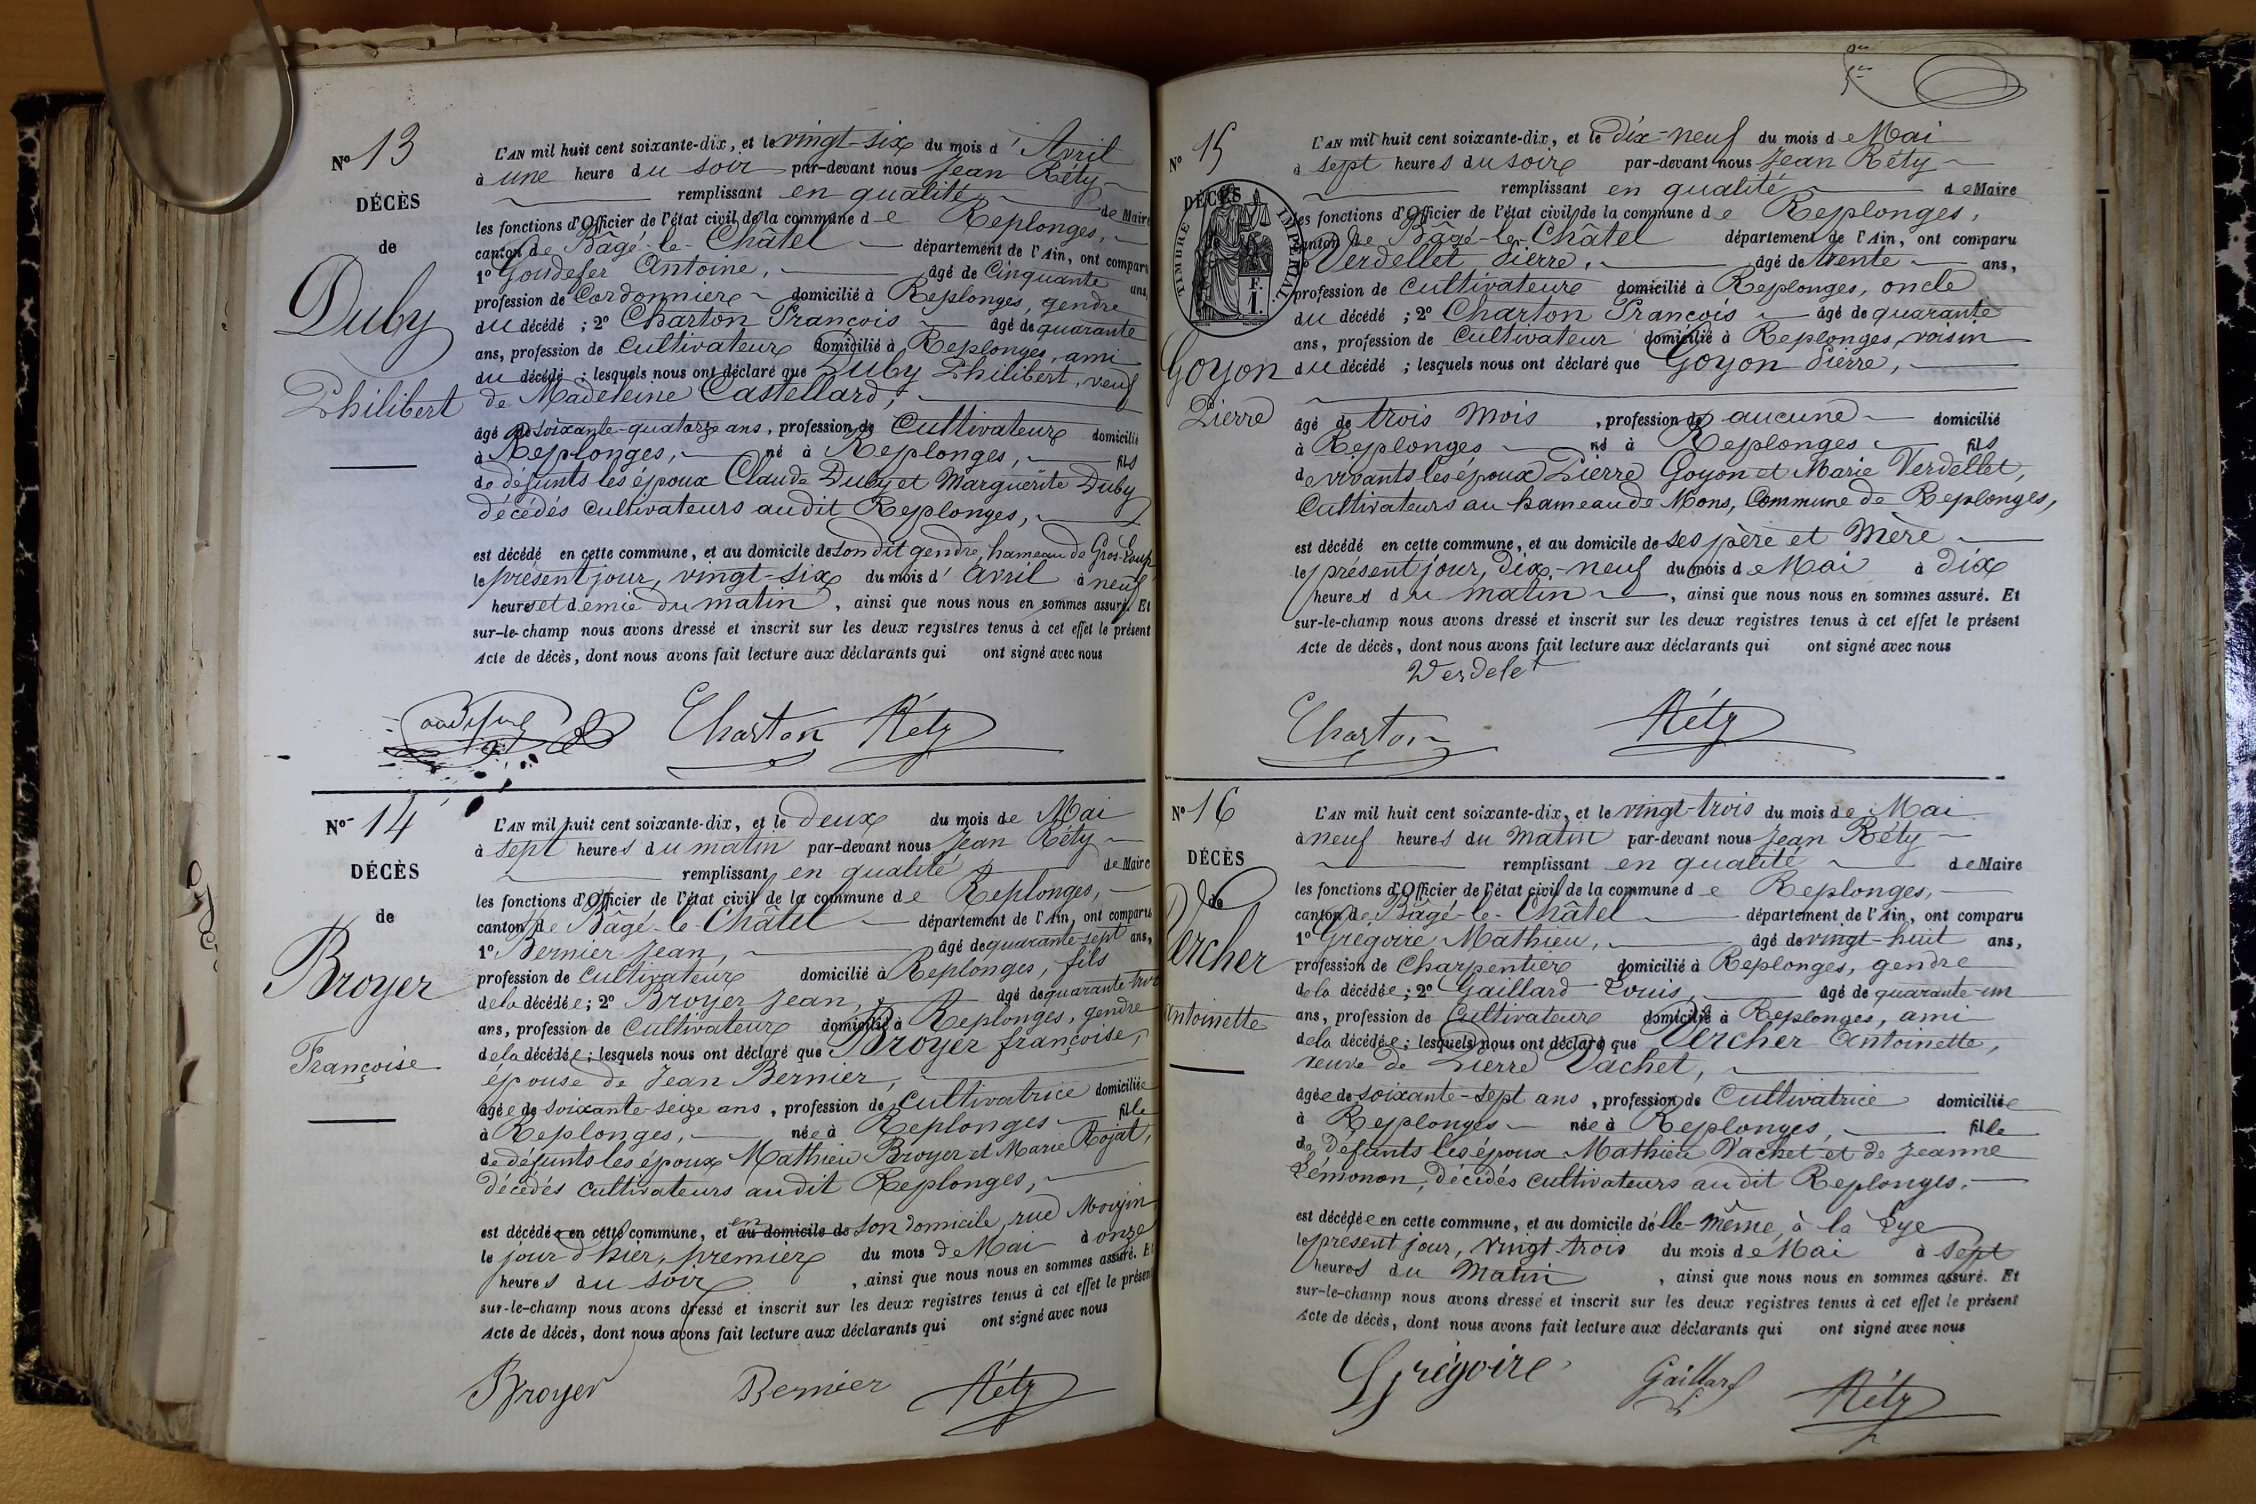 No 13
DÉCÈS
de
Duby
Philibert
L'AN mil huit cent soixante-dix, et le vingt-six du mois d'Avril
à une heure du soir par-devant nous Jean Réty
remplissant en qualité de Maire
les fonctions d'Officier de l'état civil de la commune de Replonges,
canton de Bâgé-le-Châtel département de l'Ain, ont comparu
1o Goudefer Antoine, âgé de Cinquante ans,
profession de Cordonnier domicilié à Replonges, gendre
du décédé ; 2o Charton François âgé de quarante
ans, profession de Cultivateur domicilié à Replonges, ami
du décédé ; lesquels nous ont déclaré que Duby Philibert, veuf
de Madeleine Castellard,
âgé de soixante-quatorze ans, profession de Cultivateur domicilié
à Replonges, né à Replonges, fils
de défunts les époux Claude Duby et Marguerite Duby
décédés cultivateurs audit Replonges,
est décédé en cette commune, et au domicile de son dit gendre, hameau de Gros-Loup
le présent jour, vingt-six du mois d'Avril à neuf
heures et demie du matin, ainsi que nous nous en sommes assuré. Et
sur-le-champ nous avons dressé et inscrit sur les deux registres tenus à cet effet le présent
Acte de décès, dont nous avons fait lecture aux déclarants qui ont signé avec nous
Charton Réty
No 14
DÉCÈS
de
Broyer
Françoise
L'AN mil huit cent soixante-dix, et le deux du mois de Mai
à sept heures du matin par-devant nous Jean Réty
remplissant en qualité de Maire
les fonctions d'Officier de l'état civil de la commune de Replonges,
canton de Bâgé-le-Châtel département de l'Ain, ont comparu
1o Bernier Jean, âgé de quarante-sept ans,
profession de Cultivateur domicilié à Replonges, fils
de la décédée ; 2o Broyer Jean, âgé de quarante-trois
ans, profession de Cultivateur domicilié à Replonges, gendre
de la décédée ; lesquels nous ont déclaré que Broyer françoise,
épouse de Jean Bernier,
âgée de soixante-seize ans, profession de Cultivatrice domiciliée
à Replonges, née à Replonges fille
de défunts les époux Mathieu Broyer et Marie Rojat,
décédés cultivateurs audit Replonges,
est décédée en cette commune, et en au domicile de son domicile, rue Mougin
le jour d'hier, premier du mois de Mai à onze
heures du soir, ainsi que nous nous en sommes assuré. Et
sur-le-champ nous avons dressé et inscrit sur les deux registres tenus à cet effet le présent
Acte de décès, dont nous avons fait lecture aux déclarants qui ont signé avec nous
Broyer Bernier Réty
No 15
DÉCÈS
TIMBRE IMPÉRIAL
F.
1.
Goyon
Pierre
L'AN mil huit cent soixante-dix, et le dix-neuf du mois de Mai
à sept heures du soir par-devant nous Jean Réty
remplissant en qualité de Maire
les fonctions d'Officier de l'état civil de la commune de Replonges,
canton de Bâgé-le-Châtel département de l'Ain, ont comparu
1o Verdellet Pierre, âgé de trente ans,
profession de Cultivateur domicilié à Replonges, oncle
du décédé ; 2o Charton François âgé de quarante
ans, profession de Cultivateur domicilié à Replonges, voisin
du décédé ; lesquels nous ont déclaré que Goyon Pierre,
âgé de trois mois, profession de aucune domicilié
à Replonges né à Replonges fils
de vivants les époux Pierre Goyon et Marie Verdellet,
Cultivateurs au hameau de Mons, Commune de Replonges,
est décédé en cette commune, et au domicile de ses père et Mère
le présent jour, dix-neuf du mois de Mai à dix
heures du matin, ainsi que nous nous en sommes assuré. Et
sur-le-champ nous avons dressé et inscrit sur les deux registres tenus à cet effet le présent
Acte de décès, dont nous avons fait lecture aux déclarants qui ont signé avec nous
Verdelet
Charton Réty
No 16
DÉCÈS
de
Vercher
Antoinette
L'AN mil huit cent soixante-dix, et le vingt-trois du mois de Mai
à neuf heures du Matin par-devant nous Jean Réty
remplissant en qualité de Maire
les fonctions d'Officier de l'état civil de la commune de Replonges,
canton de Bâgé-le-Châtel département de l'Ain, ont comparu
1o Grégoire Mathieu, âgé de vingt-huit ans,
profession de Charpentier domicilié à Replonges, gendre
de la décédée ; 2o Gaillard Louis, âgé de quarante-un
ans, profession de Cultivateur domicilié à Replonges, ami
de la décédée ; lesquels nous ont déclaré que Vercher Antoinette,
veuve de Pierre Vachet,
âgée de soixante-sept ans, profession de Cultivatrice domiciliée
à Replonges née à Replonges, fille
de défunts les époux Mathieu Vachet et de Jeanne
Lémonon, décédés cultivateurs audit Replonges.
est décédée en cette commune, et au domicile d'elle-même, à la Eye
le présent jour, vingt-trois du mois de Mai à sept
heures du Matin, ainsi que nous nous en sommes assuré. Et
sur-le-champ nous avons dressé et inscrit sur les deux registres tenus à cet effet le présent
Acte de décès, dont nous avons fait lecture aux déclarants qui ont signé avec nous
Grégoire Gaillard Réty